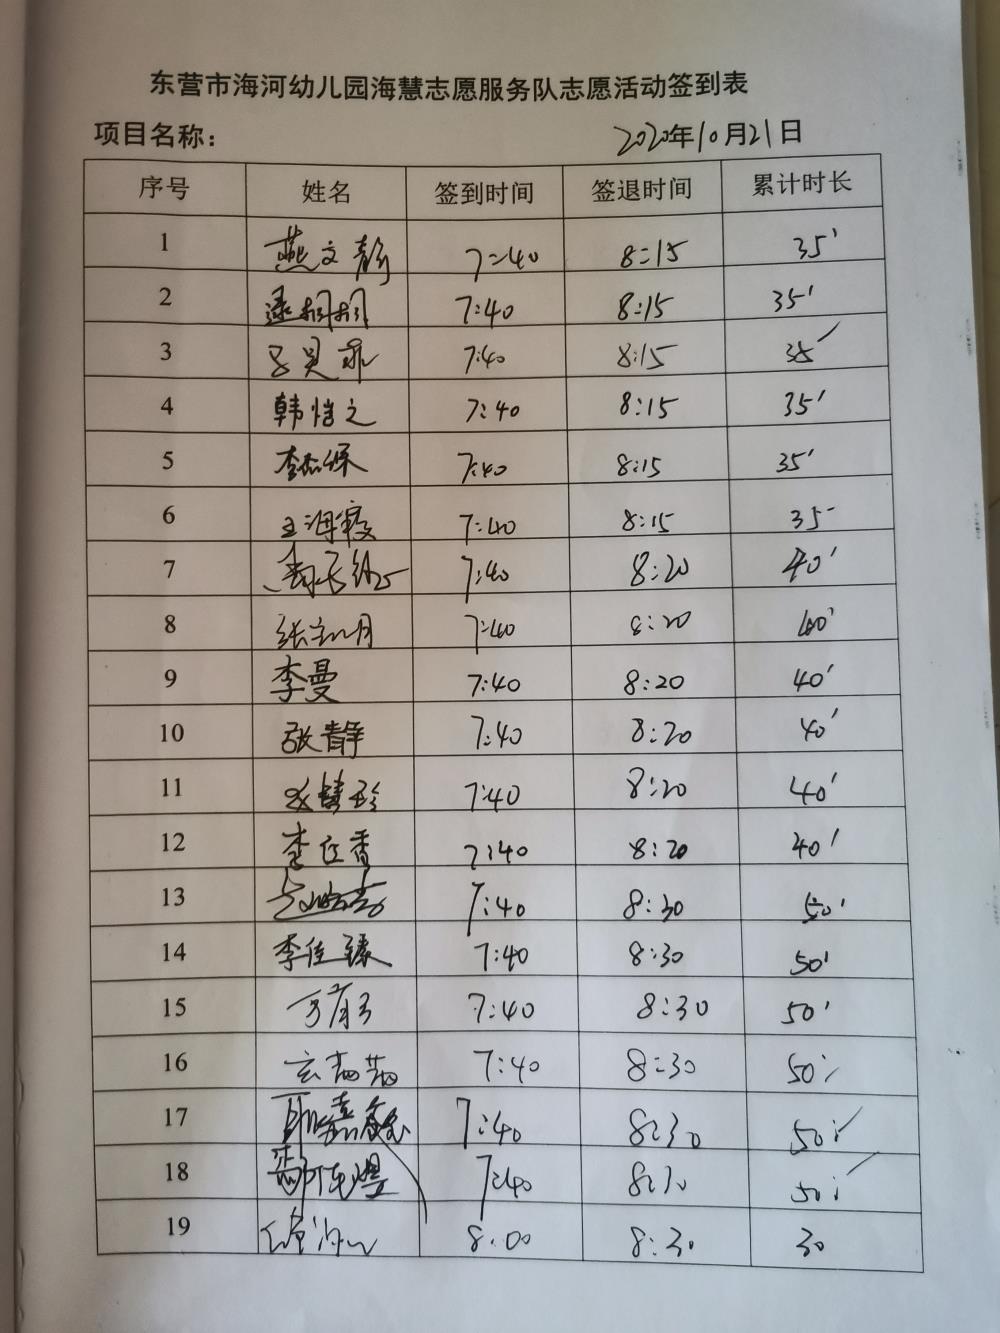 东营市海河幼儿园海慧志愿服务队志愿活动签到表
项目名称： 2020年10月21日
序号 姓名 签到时间 签退时间 累计时长
1 燕文静 7:40 8:15 35'
2 7:40 8:15 35'
3 7:40 8:15 35'
4 韩恺之 7:40 8:15 35'
5 7:40 8:15 35'
6 王海霞 7:40 8:15 35'
7 7:40 8:20 40'
8 7:40 8:20 40'
9 李曼 7:40 8:20 40'
10 张静 7:40 8:20 40'
11 7:40 8:20 40'
12 7:40 8:20 40'
13 7:40 8:30 50'
14 李佳臻 7:40 8:30 50'
15 7:40 8:30 50'
16 7:40 8:30 50'
17 7:40 8:30 50'
18 7:40 8:30 50'
19 8:00 8:30 30